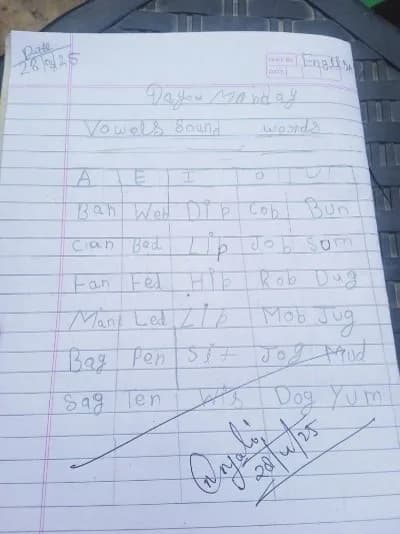 Date
28/4/25
English
Day - Monday
Vowels Sound words
A E I O U
Ban Web Dip Cob Bun
Can Bed Lip Job Sum
Fan Fed Hip Rob Dug
Man Led Lip Mob Jug
Bag Pen Sit Jog Mud
Sag Ten His Dog Yum
28/4/25